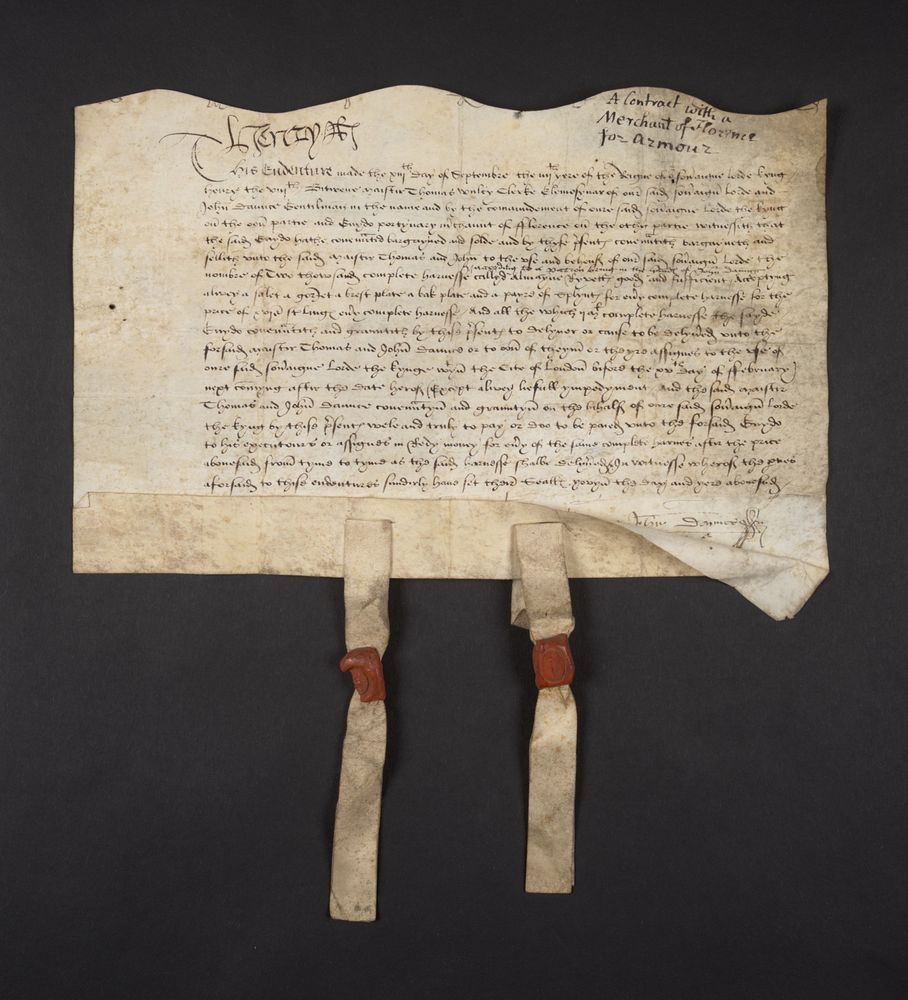 A Contract with a
Merchant of Florence
for Armour
Henry R
This Endenture made the xiiijth day of Septembre the iiijth yere of the Reigne of oure soveraigne lorde kyng
henry the viijth Bitwene maister Thomas Wulcy Clerke Elemosynar of our said soveraign lorde and
John Daunce Gentilman in the name and by the comaundement of oure said soveraigne lorde the kyng
on the oon partie and Guydo portynary mrchaunt of fflorence on the other partie witnessith that
the said Guydo hathe covenunted bargayned and solde and by thise pesent covenntith bargayneth and
sellith unto the said maister Thomas and John to the use and behouf of our said soveraign lorde the
according to a patron being in the hands of John Daunce
nombre of Two thowsand complete harnesse callyd Almayne Ryvett good and sufficient, Accepting
alwey a salet a gorget a brest plate a bak plate and a payre of splynt for every complete harnesse for the
price of xvjs sterling every complete harnesse And all the which ijml complete harnesse the sayde
Guydo covenntith and grauntith by thise psent to delyver or cause to be delyvered unto the
forsaid maister Thomas and John Daunce or to oon of theym or theyre assignes to the use of
oure said soveraigne lorde the kynge wtyn the Cite of London bifore the xvth day of ffebruary
next comyng after the date herof Except alwey lefull ympedyment And the said maister
Thomas and John Daunce covenntyn and grauntyn on the bihalf of oure said soveraign lorde
the kyng by thise psent wele and truly to pay or doo to be paied unto the forsaid Guydo
to his executours or assignes in Redy money for every of the same complete harnes after the price
abovesaid from tyme to tyme as the said harnesse shalbe delyvered In witnesse wherof the pties
aforsaid to thise endentures sundirly have set their Sealles yeven the day and yere abovesaid
John Daunce